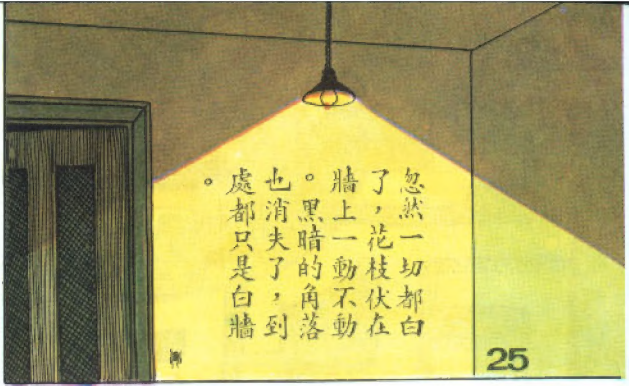 忽然一切都白
了，花枝伏在
牆上一動不動
。黑暗的角落
也消失了，到
處都只是白牆
。
25